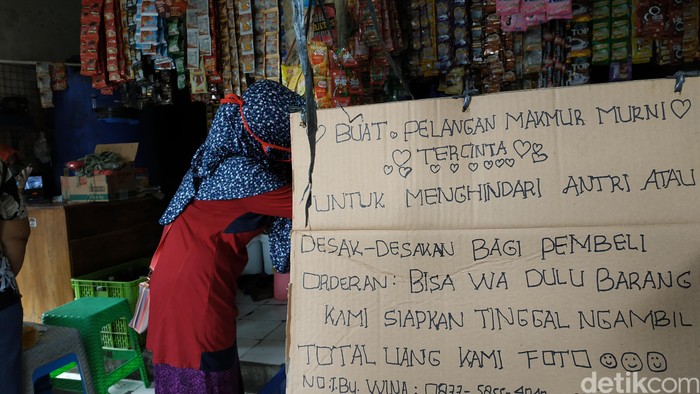 ♡ BUAT PELANGAN MAKMUR MURNI ♡
TERCINTA
UNTUK MENGHINDARI ANTRI ATAU
DESAK-DESAKAN BAGI PEMBELI
ORDERAN: BISA WA DULU BARANG
KAMI SIAPKAN TINGGAL NGAMBIL
TOTAL UANG KAMI FOTO ☺☺☺
WINA:
detikcom